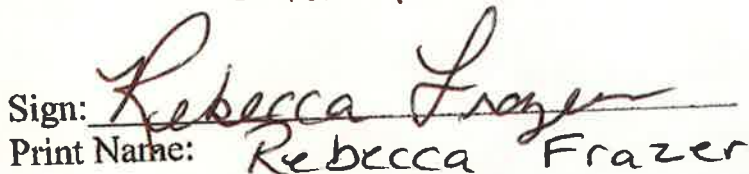 Sign: Rebecca Frazer
Print Name: Rebecca Frazer